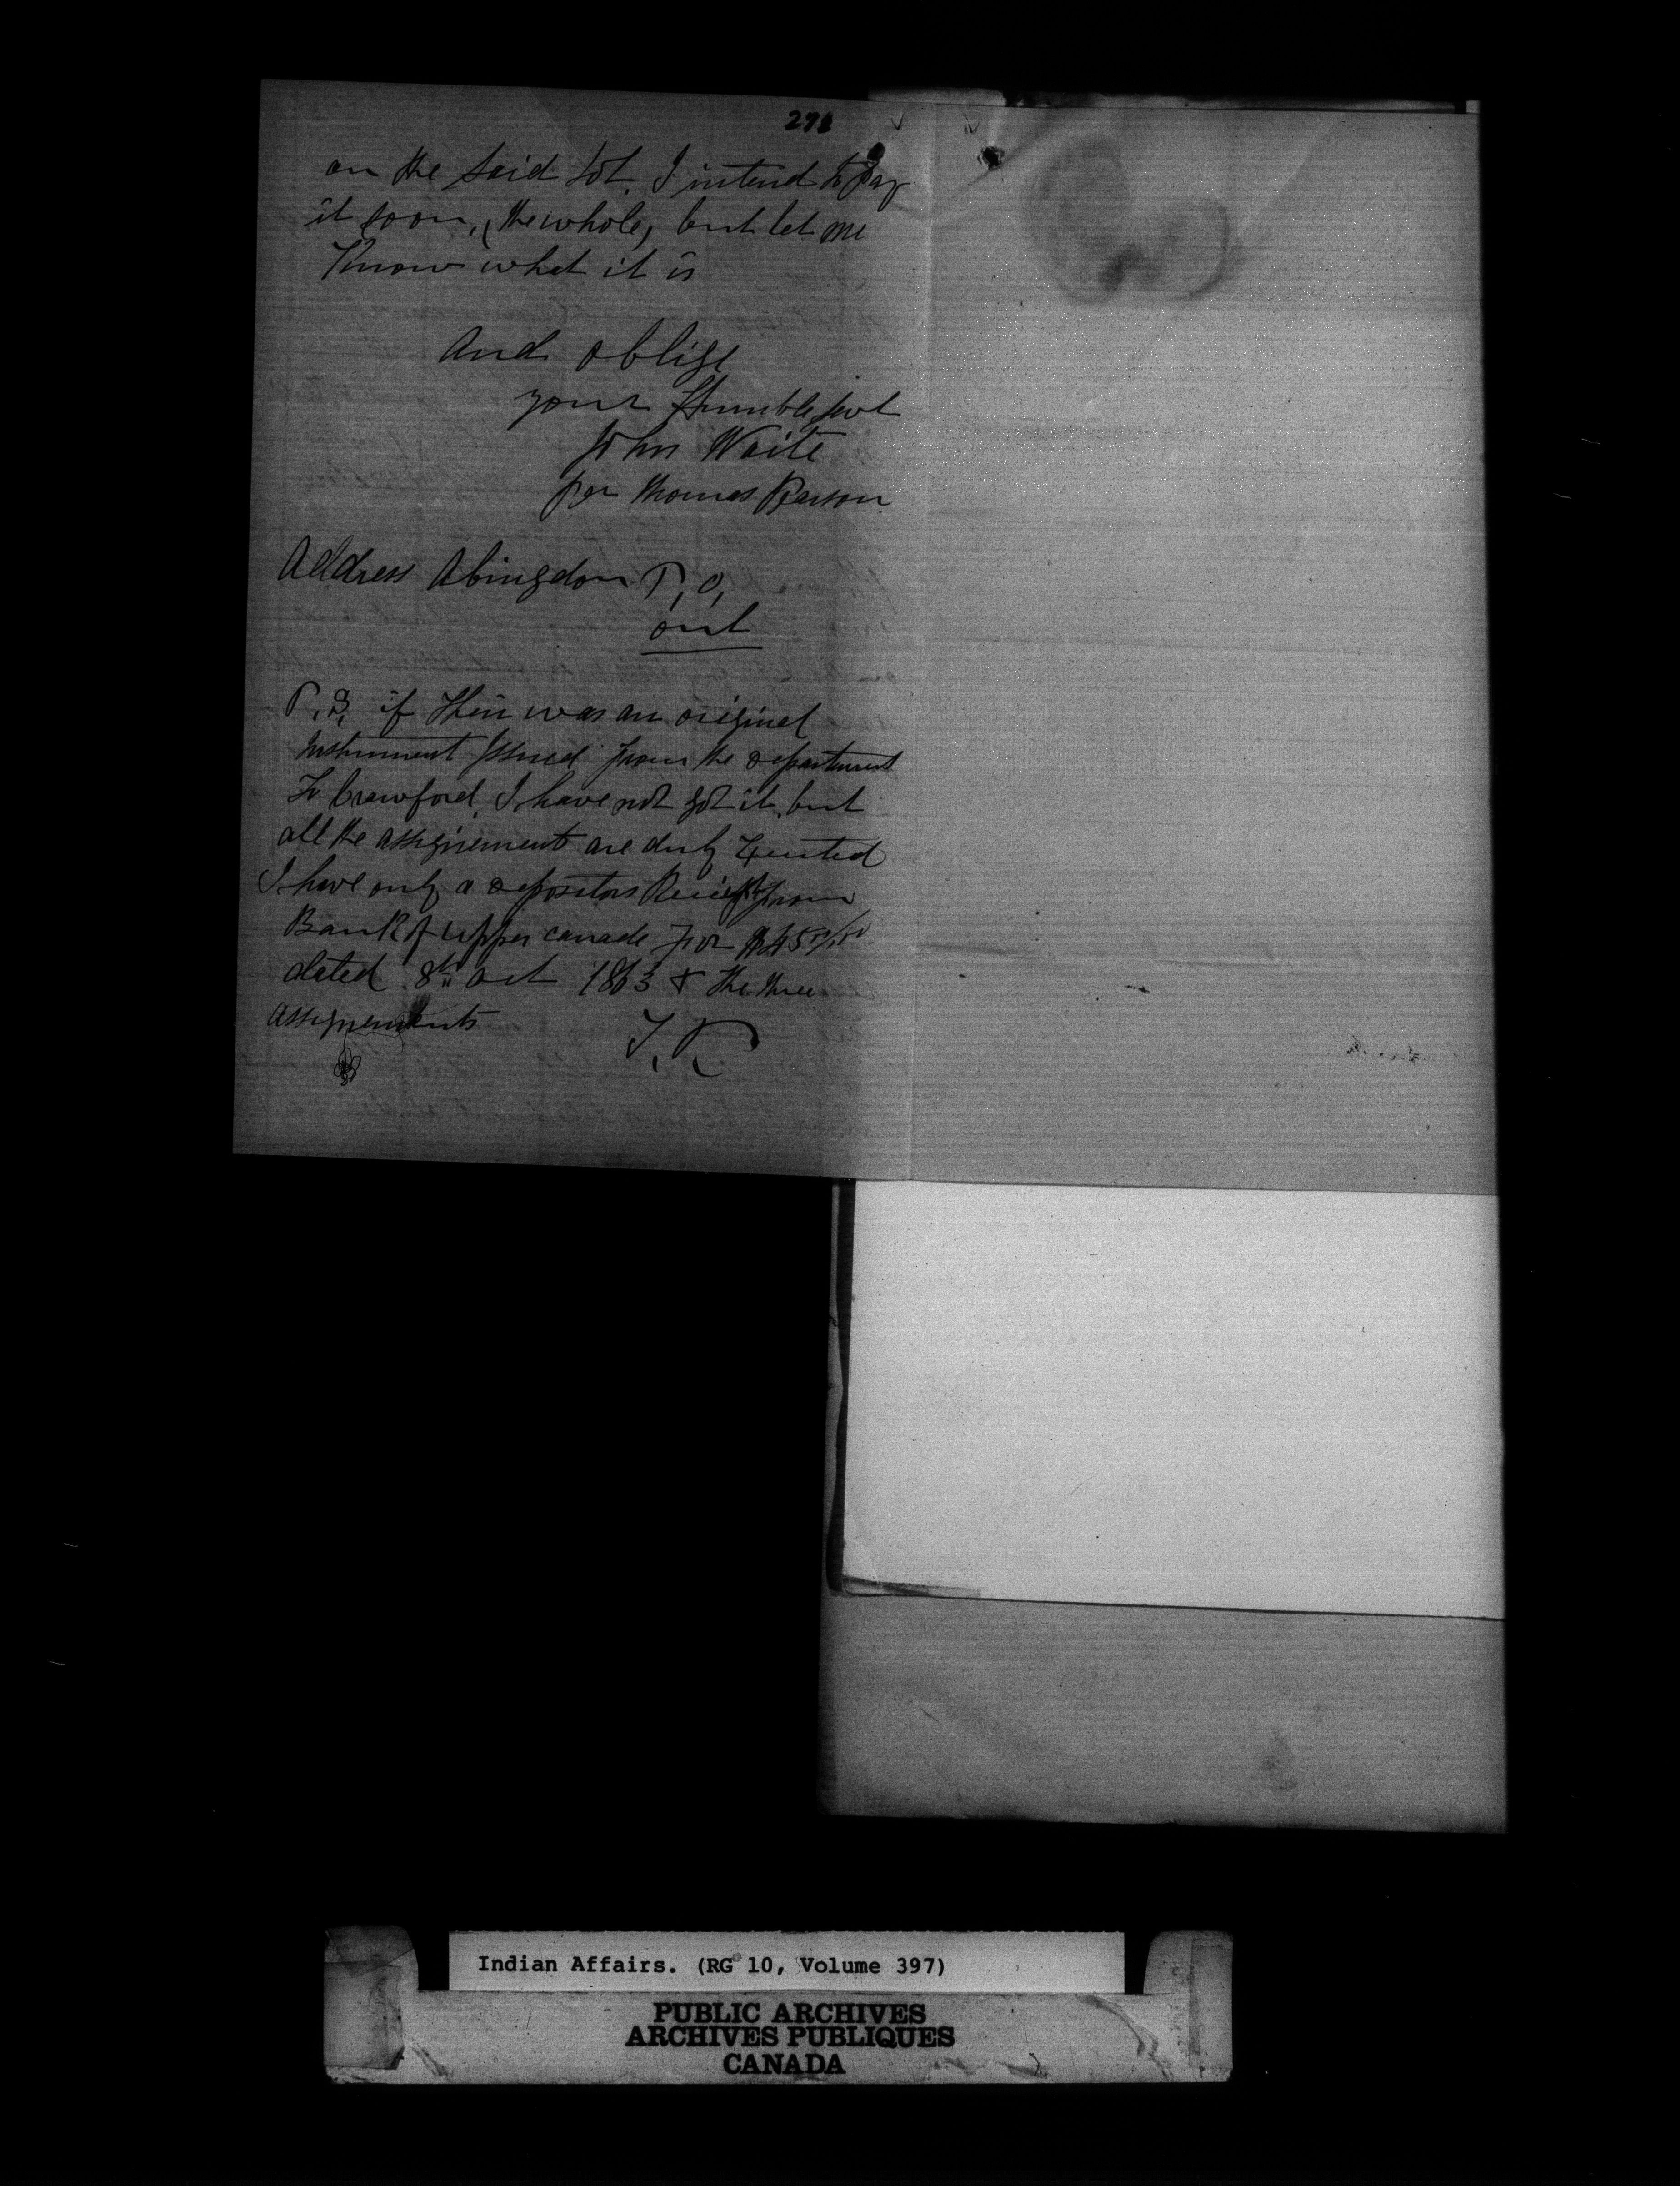 on the said Lot, I intend to Pay
it soon, (the whole) but let me
Know what it is
And oblige
your Humble servt
John Waite
per Thomas
Address Abingdon P, O,
ont
P, S, if their was an original
instrument Issued from the department
To Crawford, I have not got it, but
all the assignement are duly
I have only a depositors Reciept from
Bank of upper canada for $45
dated 8th Oct 1863 & the three
assignements
Indian Affairs. (RG 10, Volume 397)
PUBLIC ARCHIVES
ARCHIVES PUBLIQUES
CANADA